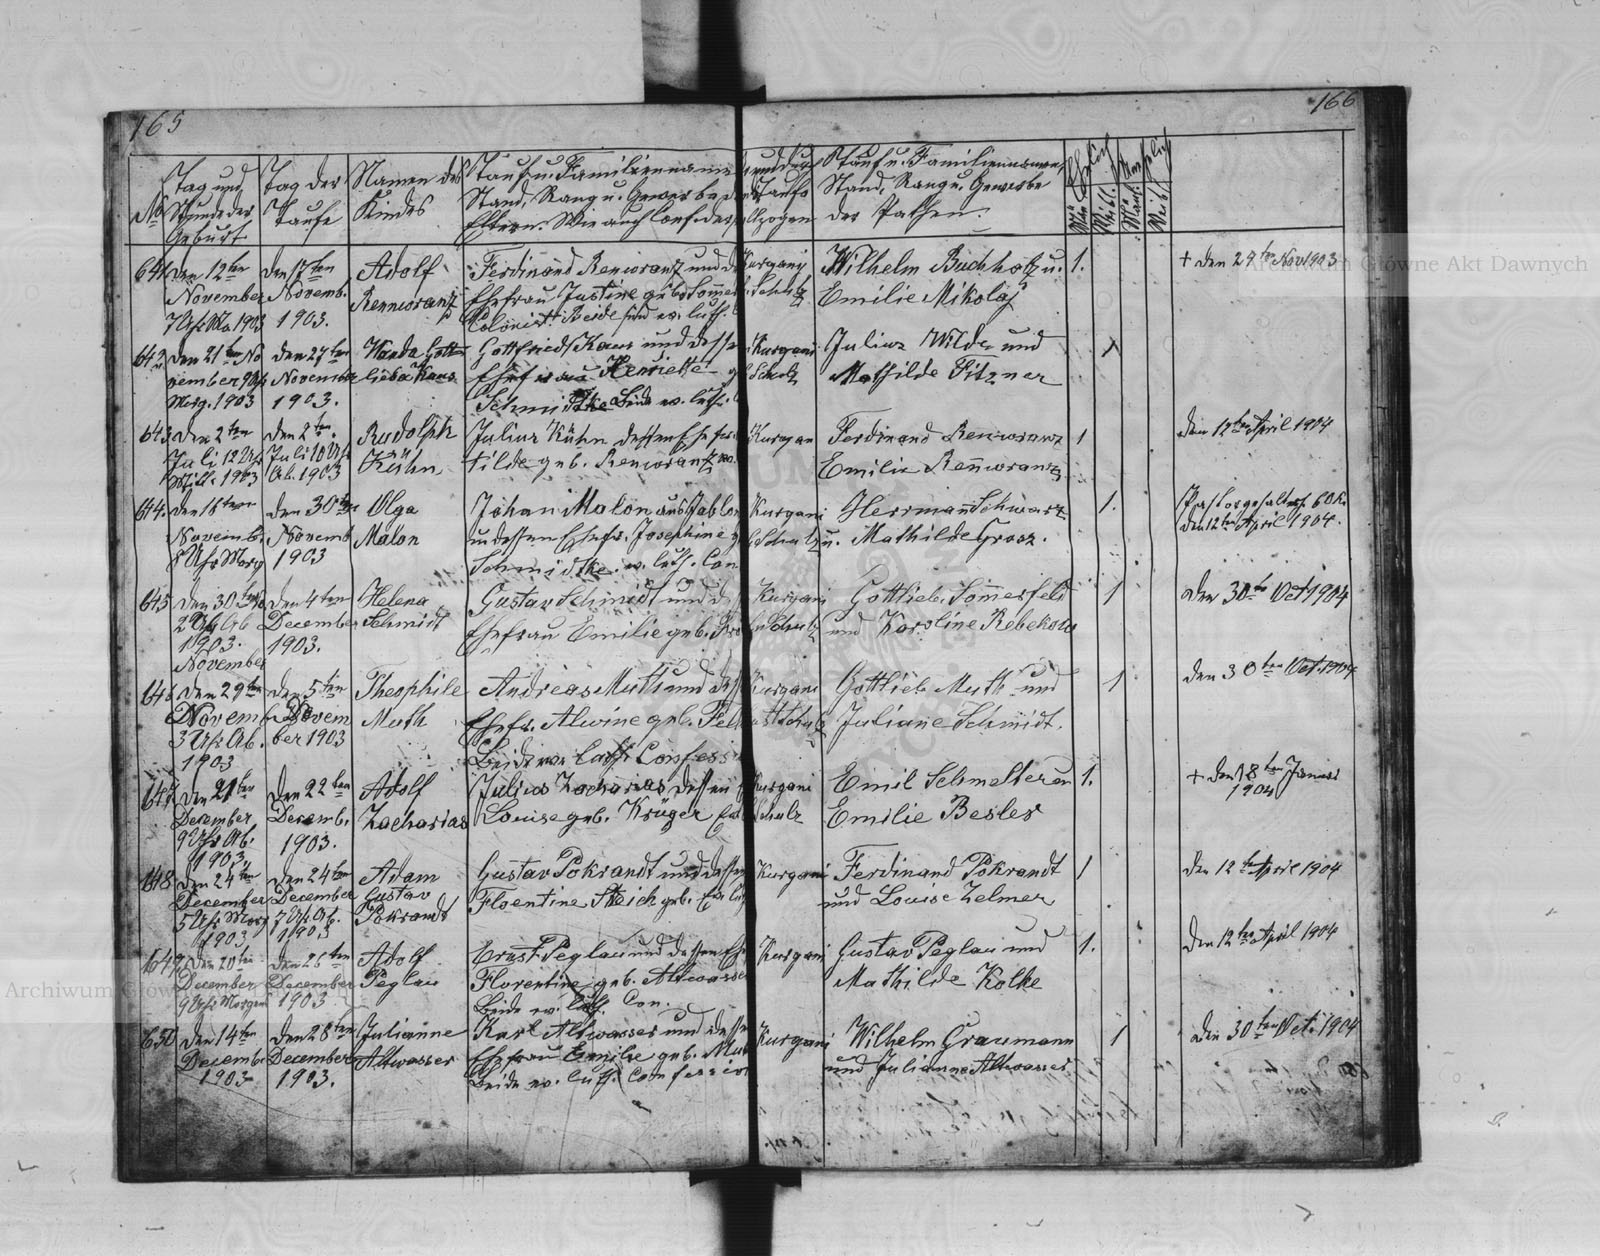 165
166
No
Tag und
Stunde der
Geburt
Tag der
Taufe
Namen des
Kindes
Tauf u. Familienname
Stand, Rang u. Gewerbe der
Eltern. Wie auch Confes
Tauf u. Familiennamen,
Stand, Rang u. Gewerbe
der Pathen.
Weibl.
Weibl.
641 den 12ten den 17ten Adolf Ferdinand Renwranz und d Kurgany Wilhelm Buchholz u. 1. + den 29ten Nov 1903
November Novemb. Rennwranz Ehefrau Justine geb. Somme Schulz Emilie Mikolaj
7 Uhr Mo 1903 1903. Colonist. Beide sind ev. luth.
642 den 21ten No den 27ten Wanda Gott Gottfried Kaus und desse Kurgani Julius Wilde und 1
vember November lieba Kaus Ehefrau Henriette g Schulz Mathilde Fitzner
Morg. 1903 1903. Schmidtke Beide ev. luth.
643 den 2ten den 2ten Rudolph Julius Kühn dessen Ehefr Kurgan Ferdinand Renwranz 1 den 12ten April 1904
Juli 12 Uhr Juli 10 Uhr Kühn tilde geb. Renwranz ev. Emilie Renwranz
Mitt. 1903 Ab. 1903
644. den 18ten den 30ten Olga Johan Malon aus Jablon Kurgani Herrman Schwarz 1. Pastorgehalt 60 K.
Novemb. Novemb Malon und dessen Ehefr. Josephine g Schulz u. Mathilde Grosz. den 12ten April 1904.
8 Uhr Morg 1903 Schmidtke. ev. luth. Con
645 den 30ten den 4ten Helena Gustav Schmidt und d Kurgani Gottlieb Sommerfeld 1 den 30ten Oct 1904
2 Uhr Ab December Schmidt Ehefrau Emilie geb. Schulz und Karoline Rebekow
1903. 1903.
November
646 den 29ten den 5ten Theophile Andreas Muth und dess Kurgani Gottlieb Muth und 1 den 30ten Oct. 1904
Novemb Novem Muth Ehefr. Alwine geb. Schulz Juliane Schmidt.
3 Uhr Ab. ber 1903 Beide ev. luth Confess
1903
647 den 21ten den 22ten Adolf Julius Zacharias dessen Kurgani Emil Schmelter un 1. + den 18ten Januar
December Decemb. Zacharias Louise geb. Krüger Schulz Emilie Besler 1904
9 Uhr Ab. 1903.
1903
648 den 24ten den 24ten Adam Gustav Pokrandt und desse Kurgani Ferdinand Pokrandt 1 den 12ten April 1904
December December Gustav Floentine Steich geb. und Louise Zelmer
5 Uhr Morg 7 Uhr Ab. Pokrandt
1903 1903
649 den 20ten den 26ten Adolf Ernst Peglau und dessen Ehe Kurgani Gustav Peglau und 1. den 12ten April 1904
December December Peglau Florentine geb. Altwasse Mathilde Kolke
9 Uhr Morgen 1903 Beide ev. luth. Con.
650 den 14ten den 28ten Julianne Karl Altwasser und desse Kurgani Wilhelm Graumann 1 den 30ten Oct. 1904
Decemb December Altwasser Ehefrau Emilie geb. Mut und Julianna Altwasser
1903 1903. Beide ev. luth. Confession
Archiwum Główne Akt Dawnych